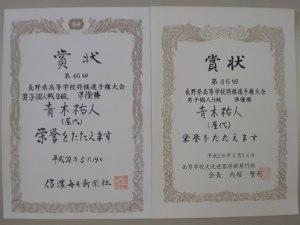 賞状
第46回
長野県高等学校将棋選手権大会
男子個人戦B級 準優勝
青木祐人
(屋代)
栄誉をたたえます
平成28年5月14日
信濃毎日新聞社
賞状
第46回
長野県高等学校将棋選手権大会
男子個人B級 準優勝
青木祐人
(屋代)
栄誉をたたえます
平成28年5月14日
高等学校文化連盟将棋専門部
会長 内堀 繁利